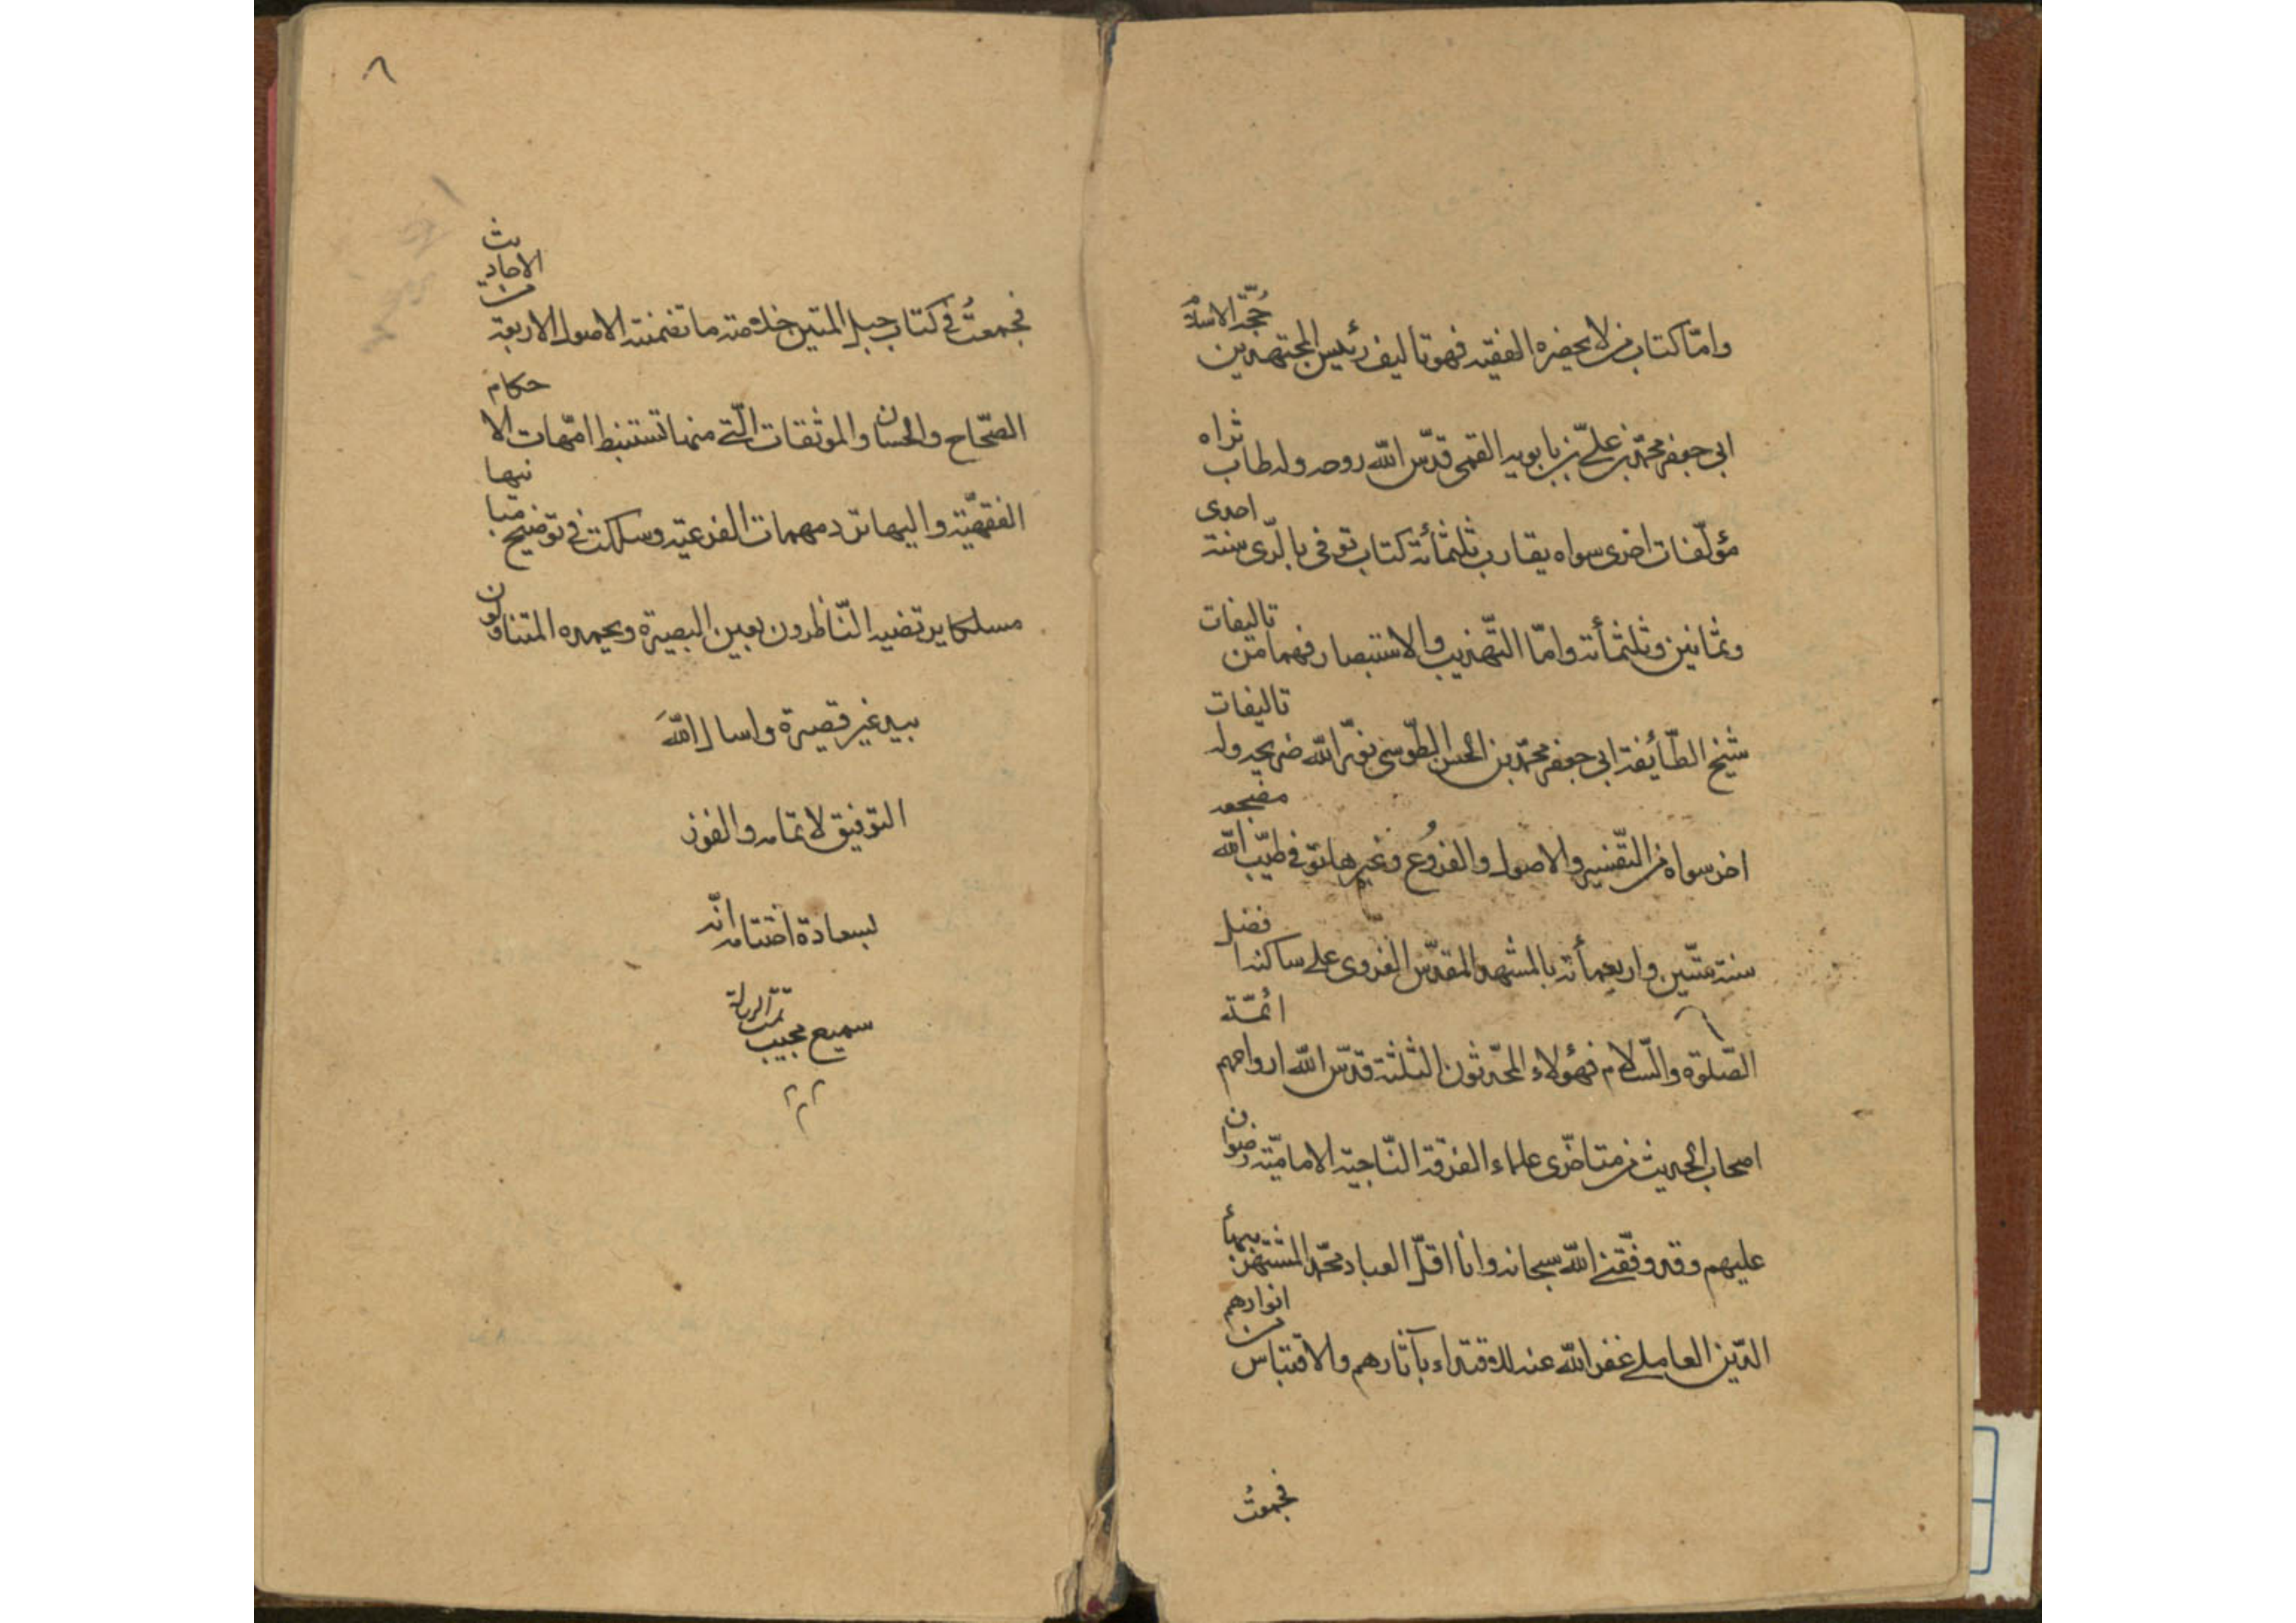 وامّا كتاب من لا يحضره الفقيه فهو تاليف رئيس المجتهدين حُجّة الاسلام
ابى جعفر محمّد بن علىّ بن بابويه القمى قدّس الله روحه وله طاب ثراه
مؤلّفات اخرى سواه يقارب ثلثمأئة كتاب توفى بالرّى سنة احدى
وثمانين وثلثمأئة وامّا التّهذيب والاستبصار فهما من تاليفات
شيخ الطّائفة ابى جعفر محمّد بن الحسن الطّوسى نوّر الله ضريحه وله تاليفات
اخر سواه من التّفسير والاصول والفرُوع وغيرها توفى طيّب الله مضجعه
سنة ستّين واربعمأئة بالمشهد المقدّس الغروى على ساكنه افضل
الصّلوة والسّلام فهؤلاء المحّدثون الثلثة قدّس الله ارواحهم ائمّة
اصحاب الحديث من متاخّرى علماء الفرقة النّاجية الاماميّة رضوان
عليهم وقد وفّقنى الله سبحانه وانا اقلّ العباد محمّد المشتهر ببهاء
الدّين العاملى غفر الله عنه للاقتداء بآثارهم والاقتباس من انوارهم
فجمعتُ
٨
فجمعتُ فى كتاب حبل المتين خلاصة ما تضمنته الاصول الاربعة من الاحاديث
الصّحاح والحسان والموثقات الّتى منها تستنبط امّهات الاحكام
الفقهيّة واليها ترد مهمات الفرعية وسلكت فى توضيح مبانيها
مسلكا يرتضيه النّاظرون بعين البصيرة ويحمده المتناولون
بيد غير قصيرة واسال اللهَ
التوفيق لاتمامه والفوز
بسعادة اختتامه انّه
سميع مجيب
تمت الرسالة